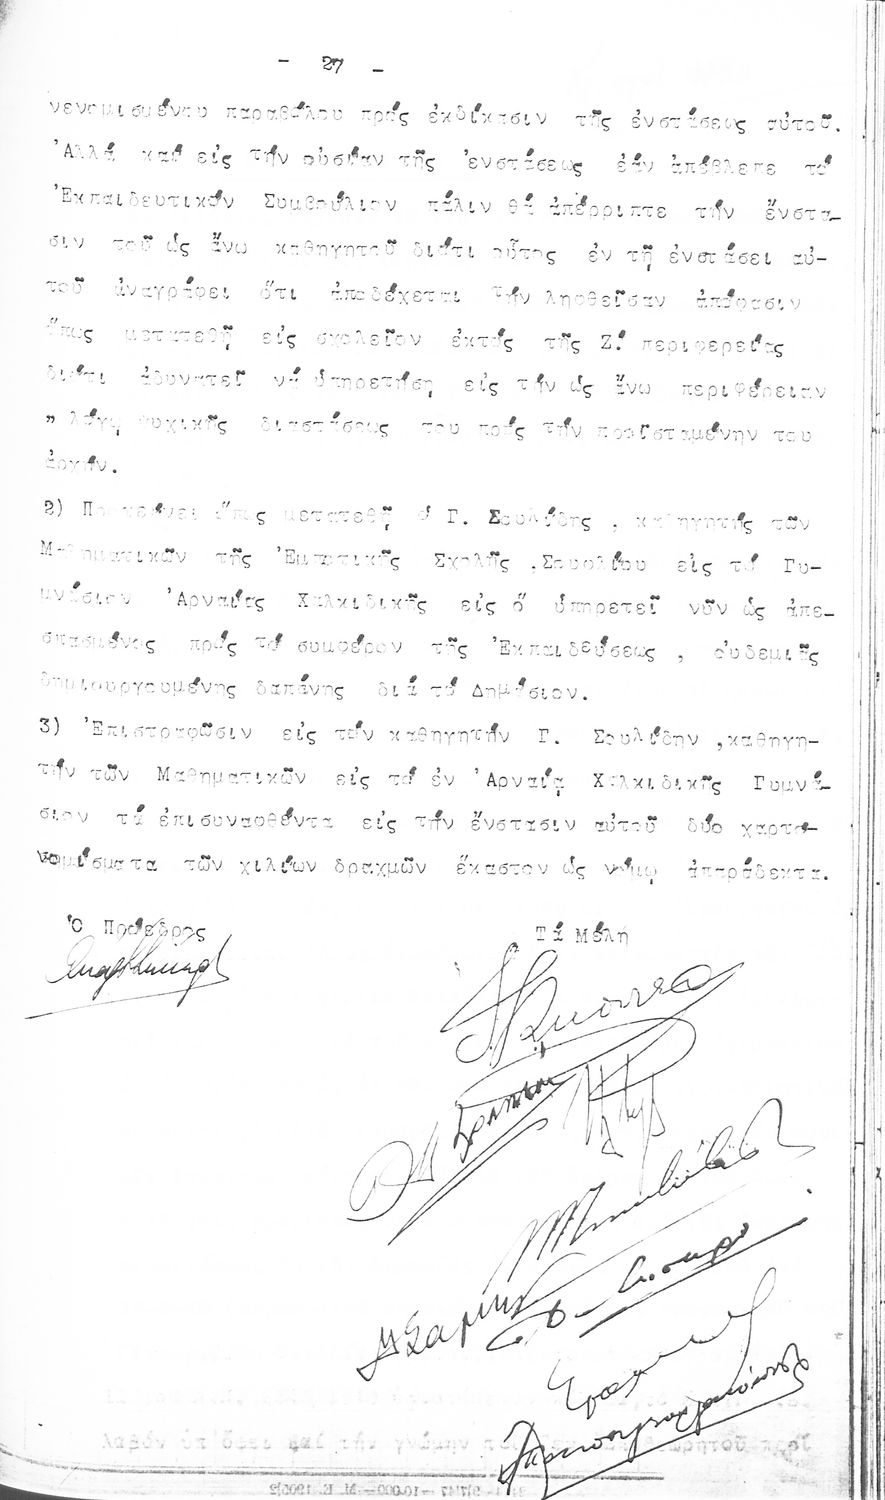 - 27 -
νενομισμένου παραβόλου πρός ἐκδίκασιν τῆς ἐνστάσεως αὐτοῦ.
Ἀλλά καί εἰς τήν οὐσίαν τῆς ἐνστάσεως ἐάν ἀπέβλεπε τό
Ἐκπαιδευτικόν Συμβούλιον πάλιν θά ἀπέρριπτε τήν ἔνστα-
σιν τοῦ ὡς ἄνω καθηγητοῦ διότι οὗτος ἐν τῇ ἐνστάσει αὐ-
τοῦ ἀναγράφει ὅτι ἀποδέχεται τήν ληφθεῖσαν ἀπόφασιν
ὅπως μετατεθῇ εἰς σχολεῖον ἐκτός τῆς Ζ! περιφερείας
διότι ἀδυνατεῖ νά ὑπηρετήσῃ εἰς τήν ὡς ἄνω περιφέρειαν
" λόγῳ ψυχικῆς διαστάσεως του πρός τήν προϊσταμένην του
ἀρχήν.
2) Προτείνει ὅπως μετατεθῇ ὁ Γ. Σουλίδης , καθηγητής τῶν
Μαθηματικῶν τῆς Ἐμπορικῆς Σχολῆς .Σουφλίου εἰς τό Γυ-
μνάσιον Ἀρναίας Χαλκιδικῆς εἰς ὅ ὑπηρετεῖ νῦν ὡς ἀπε-
σπασμένος πρός τό συμφέρον τῆς Ἐκπαιδεύσεως , οὐδεμιᾶς
δημιουργουμένης δαπάνης διά τό Δημόσιον.
3) Ἐπιστραφῶσιν εἰς τόν καθηγητήν Γ. Σουλίδην ,καθηγη-
τήν τῶν Μαθηματικῶν εἰς τό ἐν Ἀρναίᾳ Χαλκιδικῆς Γυμνά-
σιον τά ἐπισυναφθέντα εἰς τήν ἔνστασιν αὐτοῦ δύο χαρτο-
νομίσματα τῶν χιλίων δραχμῶν ἕκαστον ὡς νόμῳ ἀπαράδεκτα.
Ὁ Πρόεδρος Τά Μέλη